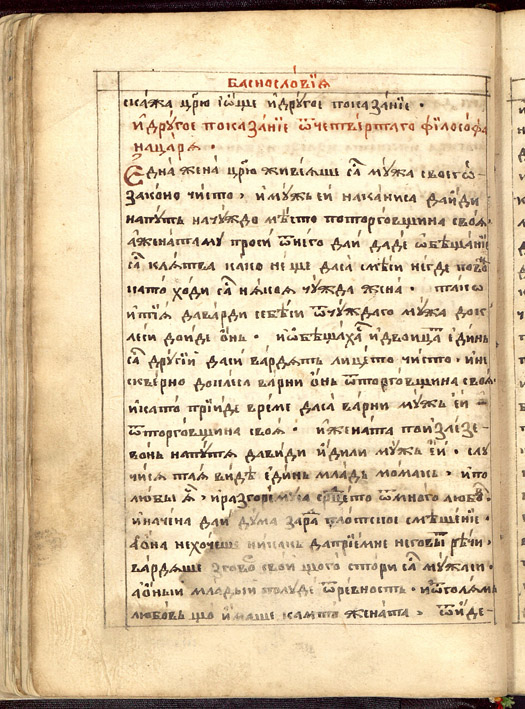 баснословїѧ
скажа цр҃ю і ѡ́ще и҆ дрꙋгое показанїе ·
и҆ дрꙋгое показанїе ѿ четвертаго філосѡфа
на царѧ ·
Една жена цр҃ю живїѧше са мꙋжа своего
законо чисто , и҆ мꙋжь ей наканиса да и҆ди
на пꙋть на чꙋждо мѣсто по торговщина своѧ ·
а жената мꙋ проси ѿ него дай даде ѡ҆бѣщанїе
са клѧтва како не ще даса смѣси негде
като ходи са нѧкоѧ чꙋжда жена · такѡ
и҆ тїѧ да варди себѣси ѿ чꙋждаго мꙋжа док
леси дойде ѻнь · и҆ ѡ҆бѣщаха и҆ двоица единь
са дрꙋгїй даси вардѧть лицето чисто · и҆ не
скверно докласа варни ѻнь ѿ торговщина своѧ ·
и҆ като прїиде време даса варни мꙋжь ей
ѿ торговщина своѧ · и҆ жената по излѣзе
вонь на пꙋтѧ да види и҆дили мꙋжь ей · слꙋ
чисѧ таѧ видѣ единь младь момакь , и҆ по
любы ѧ , и҆ разгоремꙋса срдцето ѿ много любовь
и҆ начена дай дꙋма зара плотское смѣшенїе ·
а ѻна не хочеше никакь да прїемне неговы рѣчи ·
вардѧше зговѻ свой що го стори са мꙋжаси ·
а ѻный младый полꙋде ѿ ревность · и҆ ѿ голѧмь
любовь що и҆маше кам то жената , ѿиде-